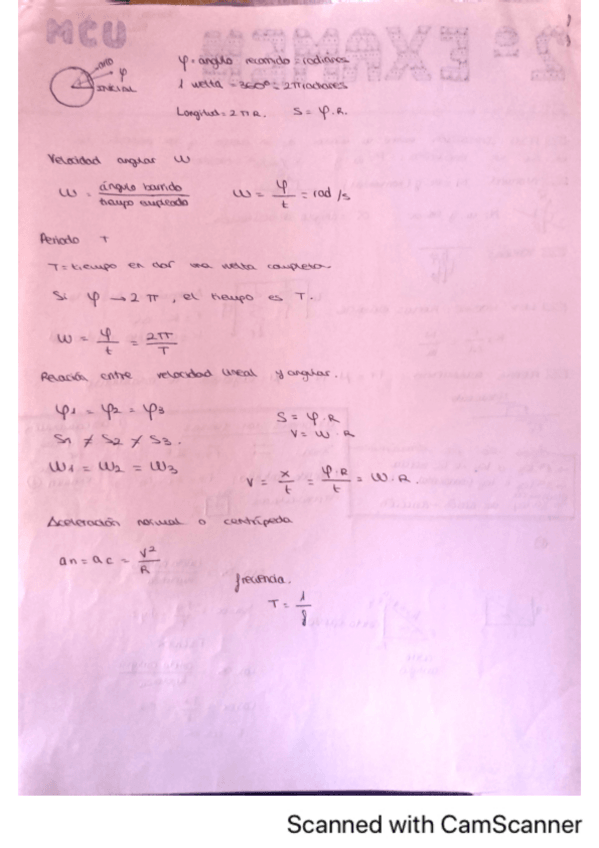 MCU
2º EXAMEN
φ = ángulo recorrido = radianes
INICIAL
1 vuelta = 360º = 2π radianes
Longitud = 2πR. S = φ·R.
Velocidad angular ω
ω = ángulo barrido / tiempo empleado ω = φ/t = rad/s
Periodo T
T = tiempo en dar una vuelta completa.
Si φ → 2π, el tiempo es T.
ω = φ/t = 2π/T
Relación entre velocidad lineal y angular.
φ1 = φ2 = φ3
S = φ·R
V = ω·R
S1 ≠ S2 ≠ S3.
ω1 = ω2 = ω3
V = x/t = φ·R/t = ω·R.
Aceleración normal o centrípeda
an = ac = V²/R
frecuencia.
T = 1/f
Scanned with CamScanner